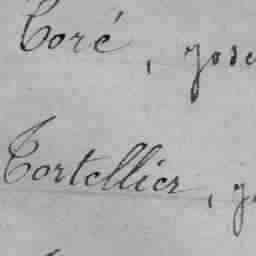 Coré, jose
Tortellier, j